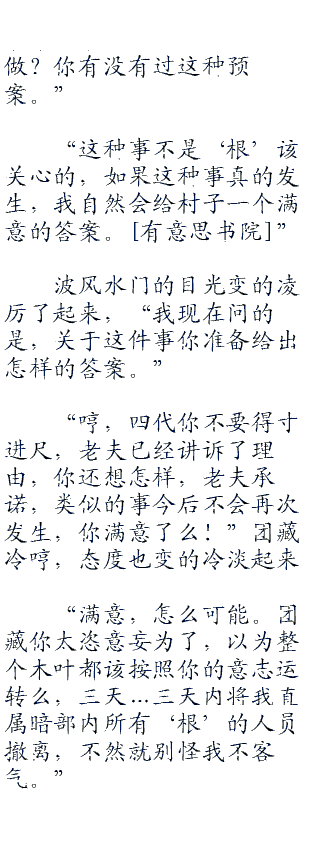 做？你有没有过这种预
案。”
“这种事不是‘根’该
关心的，如果这种事真的发
生，我自然会给村子一个满
意的答案。[有意思书院]”
波风水门的目光变的凌
厉了起来，“我现在问的
是，关于这件事你准备给出
怎样的答案。”
“哼，四代你不要得寸
进尺，老夫已经讲诉了理
由，你还想怎样，老夫承
诺，类似的事今后不会再次
发生，你满意了么！”团藏
冷哼，态度也变的冷淡起来
“满意，怎么可能。团
藏你太恣意妄为了，以为整
个木叶都该按照你的意志运
转么，三天…三天内将我直
属暗部内所有‘根’的人员
撤离，不然就别怪我不客
气。”